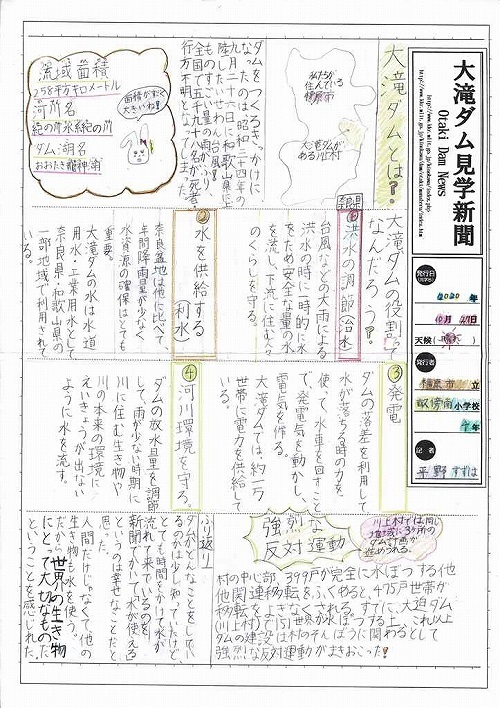 大滝ダム見学新聞
Otaki Dam News
発行日
2020年
10月27日
天候（晴れ）
発行者
橿原市立
畝傍南小学校
4年
記者
平野すずは
大滝ダムとは？
私たちが
住んでいる
橿原市
大滝ダムが
ある川上村
奈良県
ダムをつくるきっかけに
なったのは昭和三十四年の
九月二十六日に和歌山県に上
陸したいせわん台風！
ものすごい量の雨がふり、
全国で五千九十八名が死者・
行方不明となりました。
流域面積
258平方キロメートル
河川名
紀の川水系紀の川
ダム湖名
おおたき龍神湖
面積がすごく
大きいね！
大滝ダムの役割って
なんだろう？
①洪水の調節（治水）
台風などの大雨による
洪水の時に一時的に水
をため安全な量の水
を流し、下流に住む人々
のくらしを守る。
②水を供給する（利水）
奈良盆地は他と比べて、
年間降雨量が少なく
水資源の確保はとても
重要。
大滝ダムの水は水道
用水・工業用水として
奈良県・和歌山県の
一部地域で利用されて
いる。
③発電
ダムの落差を利用して
水が落ちる時の力を、
使って水車を回すこと
で、発電気を動かし、
電気を作る。
大滝ダムでは、約一万
世帯に電力を供給して
いる。
④河川環境を守る。
ダムの放水量を調節
して、雨が少ない時期に
川に住む生き物や
川の本来の環境に
えいきょうが出ない
ように水を流す。
強烈な
反対運動
川上村では同じ
地域に3ヶ所の
ダム計画が
進められる。
村の中心部、399戸が完全に水ぼつする他
関連移転をふくめると、475戸世帯が
移転をよぎなくされる。すでに、大迫ダム
ダムの建設は村のそんぼうに関わるとして
強烈な反対運動がまきおこった！
ふり返り
ダムがどんなことをしてい
るのかは少し知っていたけど、
とても時間をかけて水が
流れて来ているのを
新聞をかいて、水が使える
というのは幸せなことだと
思った。
人間だけじゃなくて他の
生き物も水を使う。
だから世界の生き物
にとって大切なものだ
ということを感じれた。